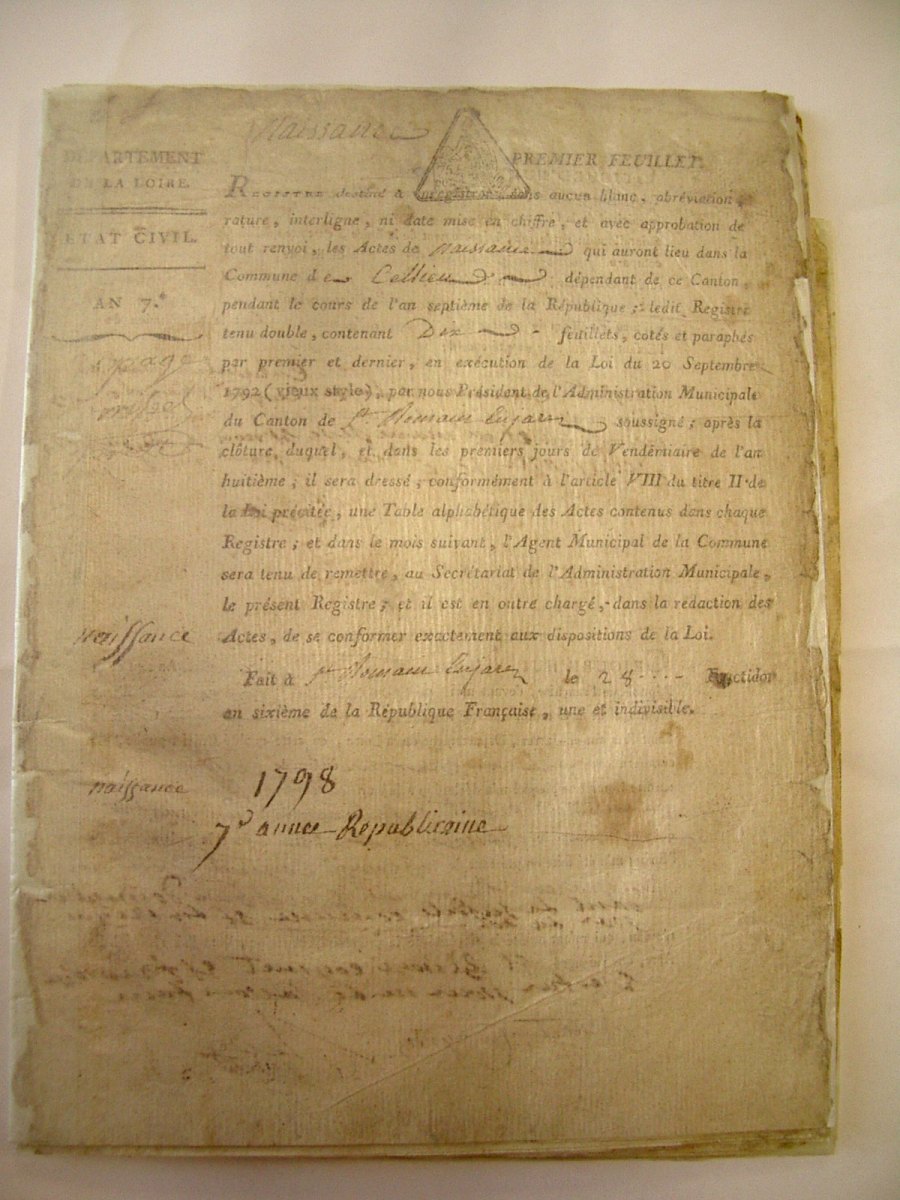 Naissance
DÉPARTEMENT
DE LA LOIRE.
ÉTAT CIVIL.
AN 7.e
PREMIER FEUILLET.
REGISTRE destiné à enregistrer, sans aucun blanc, abréviation,
rature, interligne, ni date mise en chiffre, et avec approbation de
tout renvoi, les Actes de naissance qui auront lieu dans la
Commune de Cellieu dépendant de ce Canton,
pendant le cours de l'an septième de la République; ledit Registre
tenu double, contenant Dix feuillets, cotés et paraphés
par premier et dernier, en exécution de la Loi du 20 Septembre
1792 (vieux style), par nous Président de l'Administration Municipale
du Canton de St. Romain Enjarez soussigné; après la
clôture duquel, et dans les premiers jours de Vendémiaire de l'an
huitième; il sera dressé, conformément à l'article VIII du titre II de
la Loi précitée, une Table alphabétique des Actes contenus dans chaque
Registre; et dans le mois suivant, l'Agent Municipal de la Commune
sera tenu de remettre, au Secrétariat de l'Administration Municipale,
le présent Registre; et il est en outre chargé, dans la rédaction des
Actes, de se conformer exactement aux dispositions de la Loi.
naissance
Fait à St Romain Enjarez le 28 Fructidor
an sixième de la République Française, une et indivisible.
naissance
1798
7e année Republicaine